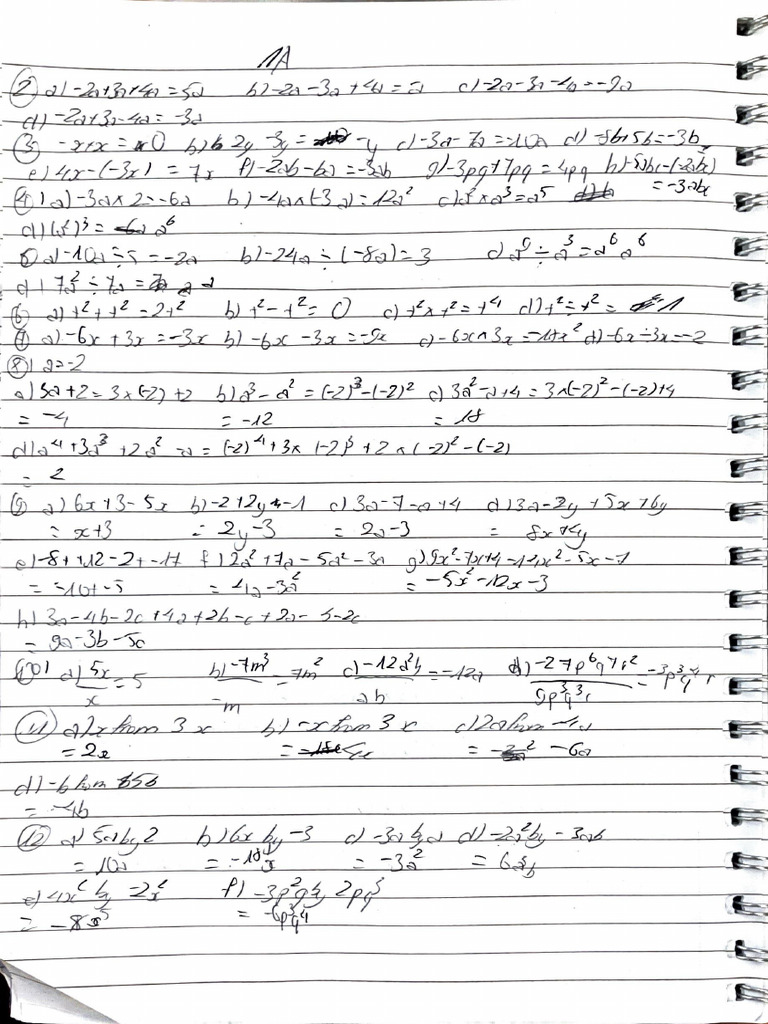 1A
② a) -2a+3a+4a = 5a b) -2a-3a+4a = -a c) -2a-3a-4a = -9a
d) -2a+3a-4a = -3a
③ -x+x = 0 b) 2y-3y = -y c) -3a-7a = -10a d) -8b+5b = -3b
e) 4x-(-3x) = 7x f) -2ab-ba = -3ab g) -3pq+7pq = 4pq h) -5abc-(-2abc)
= -3abc
④ a) -3a×2 = -6a b) -4a×(-3a) = 12a² c) a²×a³ = a⁵
d) (a²)³ = a⁶
a) -10a÷5 = -2a b) -24a÷(-8a) = 3 c) a⁹÷a³ = a⁶
d) 7a²÷7a = a
⑥ a) t²+t² = 2t² b) t²-t² = 0 c) t²×t² = t⁴ d) t²÷t² = 1
⑦ a) -6x+3x = -3x b) -6x-3x = -9x c) -6x×3x = -18x² d) -6x÷3x = -2
⑧ a=-2
a) 3a+2 = 3×(-2)+2 b) a³-a² = (-2)³-(-2)² c) 3a²-a+4 = 3×(-2)²-(-2)+4
= -4 = -12 = 18
d) a⁴+3a³+2a²-a = (-2)⁴+3×(-2)³+2×(-2)²-(-2)
= 2
⑨ a) 6x+3-5x b) -2+2y-1 c) 3a-7-a+4 d) 3x-2y+5x+6y
= x+3 = 2y-3 = 2a-3 = 8x+4y
e) -8t+12-2t-17 f) 2a²+7a-5a²-3a g) 9x²-7x+4-14x²-5x-7
= -10t-5 = 4a-3a² = -5x²-12x-3
h) 3a-4b-2c+4a+2b-c+2a-b-2c
= 9a-3b-5c
⑩ a) 5x/x = 5 b) -7m³/-m = 7m² c) -12a²b/ab = -12a d) -27p⁶q⁷r²/9p³q³r = -3p³q⁴r
⑪ a) x from 3x b) -x from 3x c) 2a from -4a
= 2x = 4x = -6a
d) -b from -5b
= -4b
⑫ a) 5a by 2 b) 6x by -3 c) -3a by a d) -2a² by -3ab
= 10a = -18x = -3a² = 6a³b
e) 4x² by -2x³ f) -3p²q by 2pq³
= -8x⁵ = -6p³q⁴